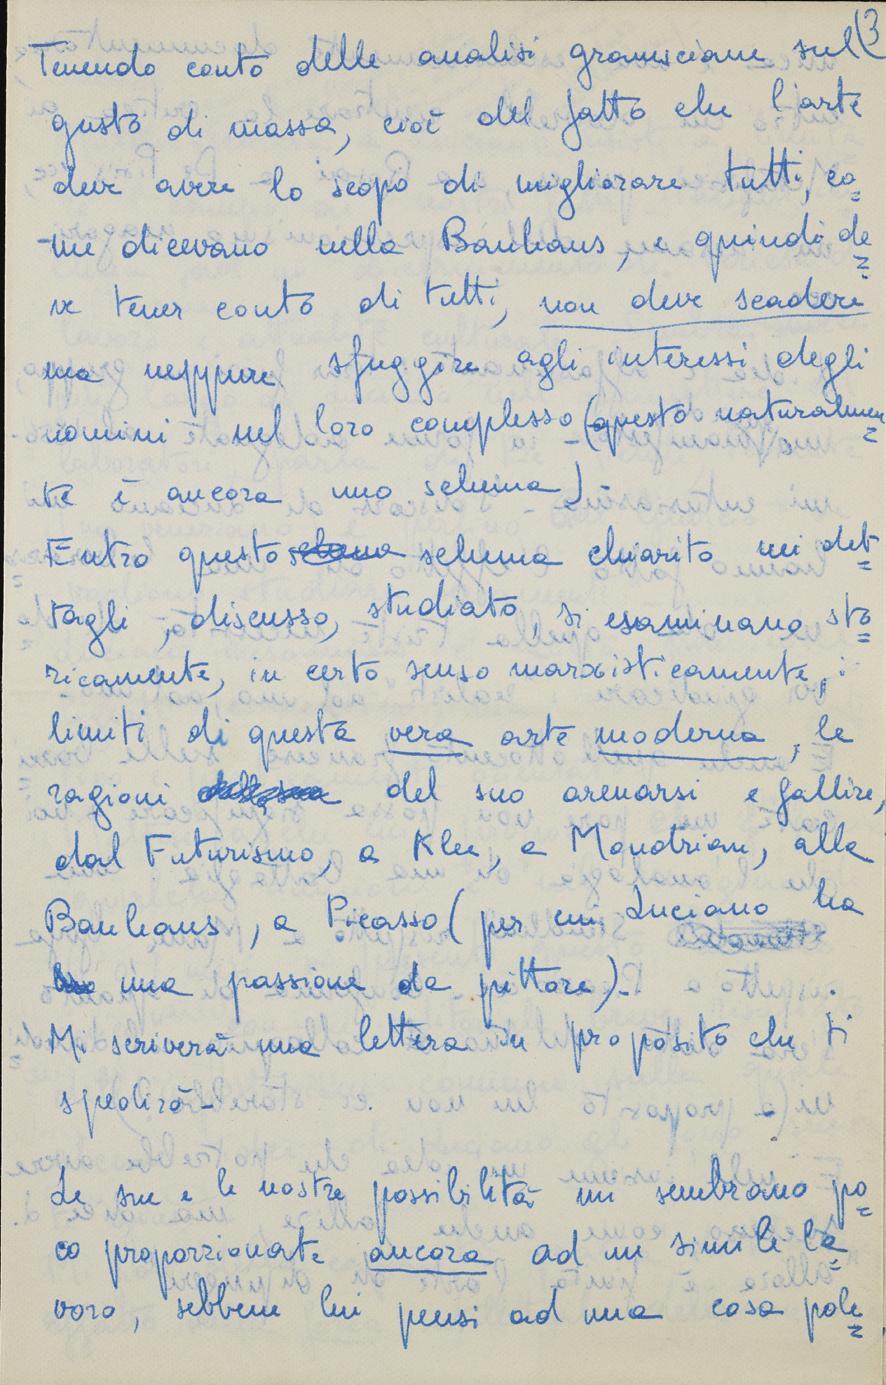 (3
Tenendo conto delle analisi gramsciane sul
gusto di massa, cioè del fatto che l'arte
deve avere lo scopo di migliorare tutti, co=
me dicevano nella Bauhaus, e quindi de=
ve tener conto di tutti, non deve scadere
ma neppure sfuggire agli interessi degli
uomini nel loro complesso (questo naturalmen=
te è ancora uno schema).-
Entro questo schema chiarito nei det=
tagli, discusso, studiato, si esaminano sto=
ricamente, in certo senso marxisticamente, i
limiti di questa vera arte moderna, le
ragioni del suo arenarsi e fallire,
dal Futurismo, a Klee, a Mondrian, alla
Bauhaus, a Picasso (per cui Luciano ha
una passione da pittore).-
Mi scriverà una lettera in proposito che ti
spedirò-
Le sue e le nostre possibilità mi sembrano po=
co proporzionate ancora ad un simile la=
voro, sebbene lui pensi ad una cosa pole=